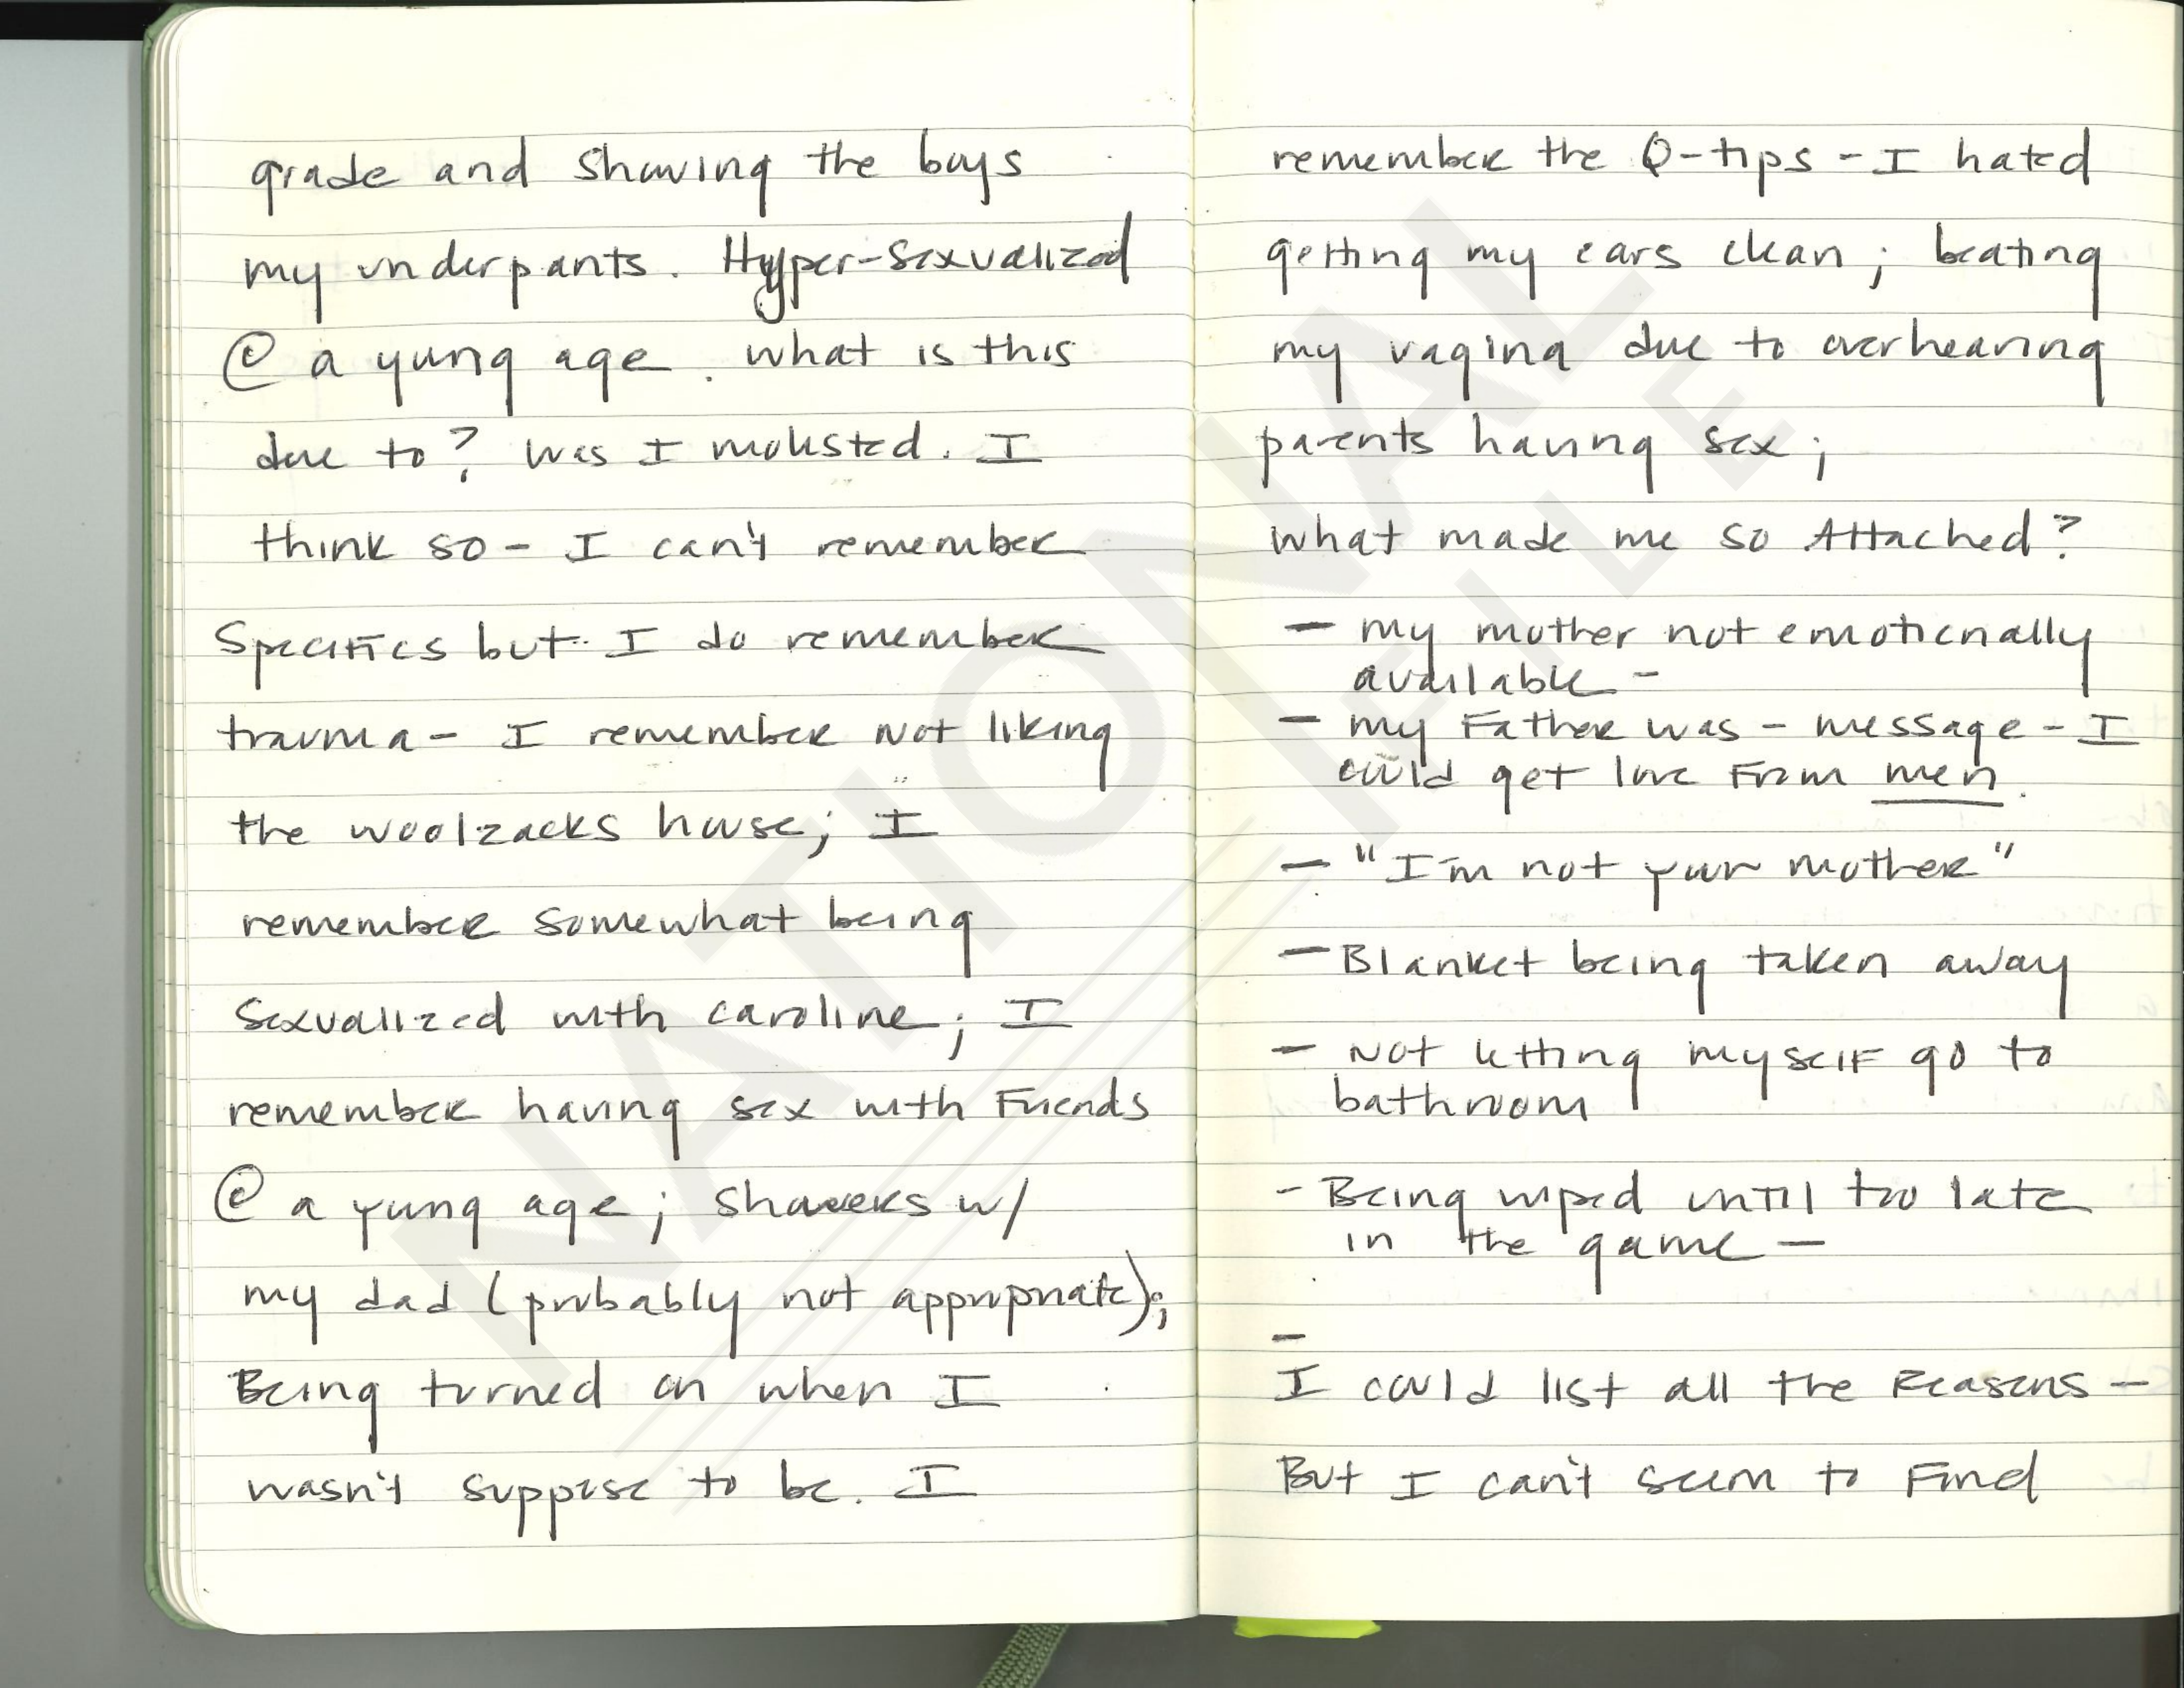 grade and showing the boys
my underpants. Hyper-sexualized
@ a young age. what is this
due to? Was I molested. I
think so - I can't remember
specifics but I do remember
trauma - I remember not liking
the woolzacks house; I
remember somewhat being
sexualized with caroline; I
remember having sex with Friends
@ a young age; showers w/
my dad (probably not appropriate);
Being turned on when I
wasn't suppose to be. I
remember the Q-tips - I hated
getting my ears clean; beating
my vagina due to overhearing
parents having sex;
what made me so Attached?
- my mother not emotionally
available -
- my Father was - message - I
could get love From men.
- "I'm not your mother"
- Blanket being taken away
- Not letting myself go to
bathroom
- Being wiped until too late
in the game -
-
I could list all the Reasons -
But I can't seem to Find
NATIONAL
FILE